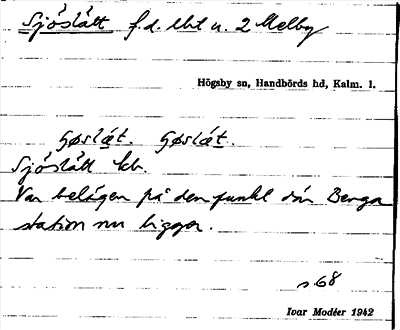 Sjöslätt f.d. lht u. 2 Melby
Högsby sn, Handbörds hd, Kalm. l.
Sjöslätt kb.
Var belägen på den punkt där Berga
station nu ligger.
s. 68
Ivar Modéer 1942